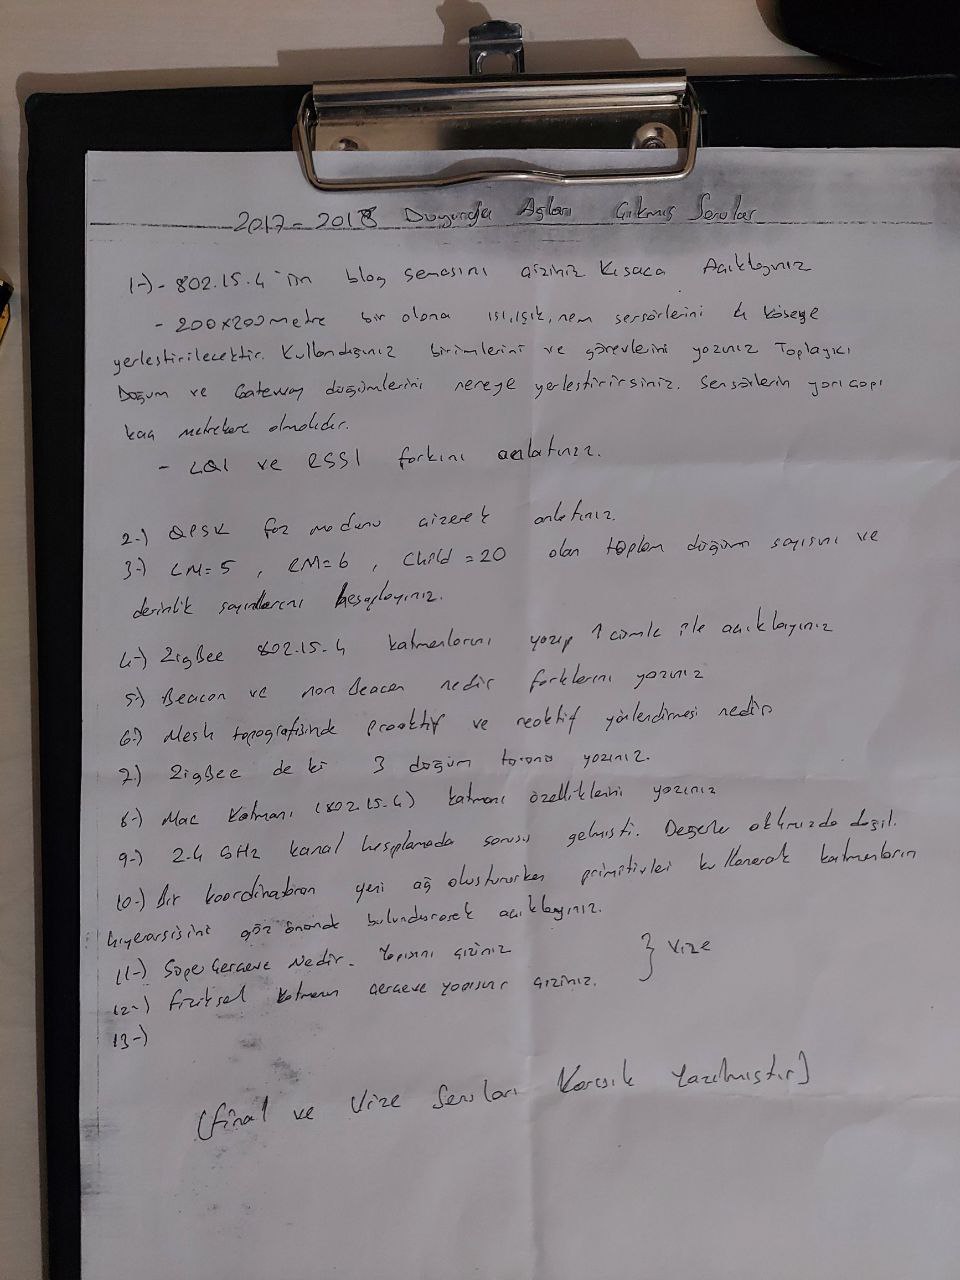 2017-2018 Duyarga Ağları Çıkmış Sorular
1-) - 802.15.4'ün blog şemasını çiziniz Kısaca Açıklayınız
- 200x200 metre bir alana ısı, ışık, nem sensörlerini 4 köşeye
yerleştirilecektir. Kullandığınız birimlerini ve görevlerini yazınız Toplayıcı
Düğüm ve Gateway düğümlerini nereye yerleştirirsiniz. Sensörlerin yarıçapı
kaç metrekare olmalıdır.
- LQI ve RSSI farkını anlatınız.
2-) QPSK faz modunu çizerek anlatınız.
3-) LM=5, RM=6, Child=20 olan toplam düğüm sayısını ve
derinlik sayılarını hesaplayınız.
4-) ZigBee 802.15.4 katmanlarını yazıp 1 cümle ile açıklayınız
5-) Beacon ve non Beacon nedir farklarını yazınız
6-) Mesh topografisinde proaktif ve reaktif yönlendirmesi nedir
7-) ZigBee de ki 3 düğüm yazınız.
8-) Mac Katmanı (802.15.4) katmanı özelliklerini yazınız
9-) 2.4 GHz kanal hesplamada sorusu gelmişti. Değerler aklımızda değil.
10-) Bir koordinatörün yeni ağ oluştururken primitivleri kullanarak katmanların
hiyerarşisini göz önünde bulundurarak açıklayınız.
11-) Süper Çerçeve Nedir. Yapısını çiziniz } Vize
12-) Fiziksel katmanın çerçeve yapısını çiziniz.
13-)
(Final ve Vize Soruları Karışık Yazılmıştır)